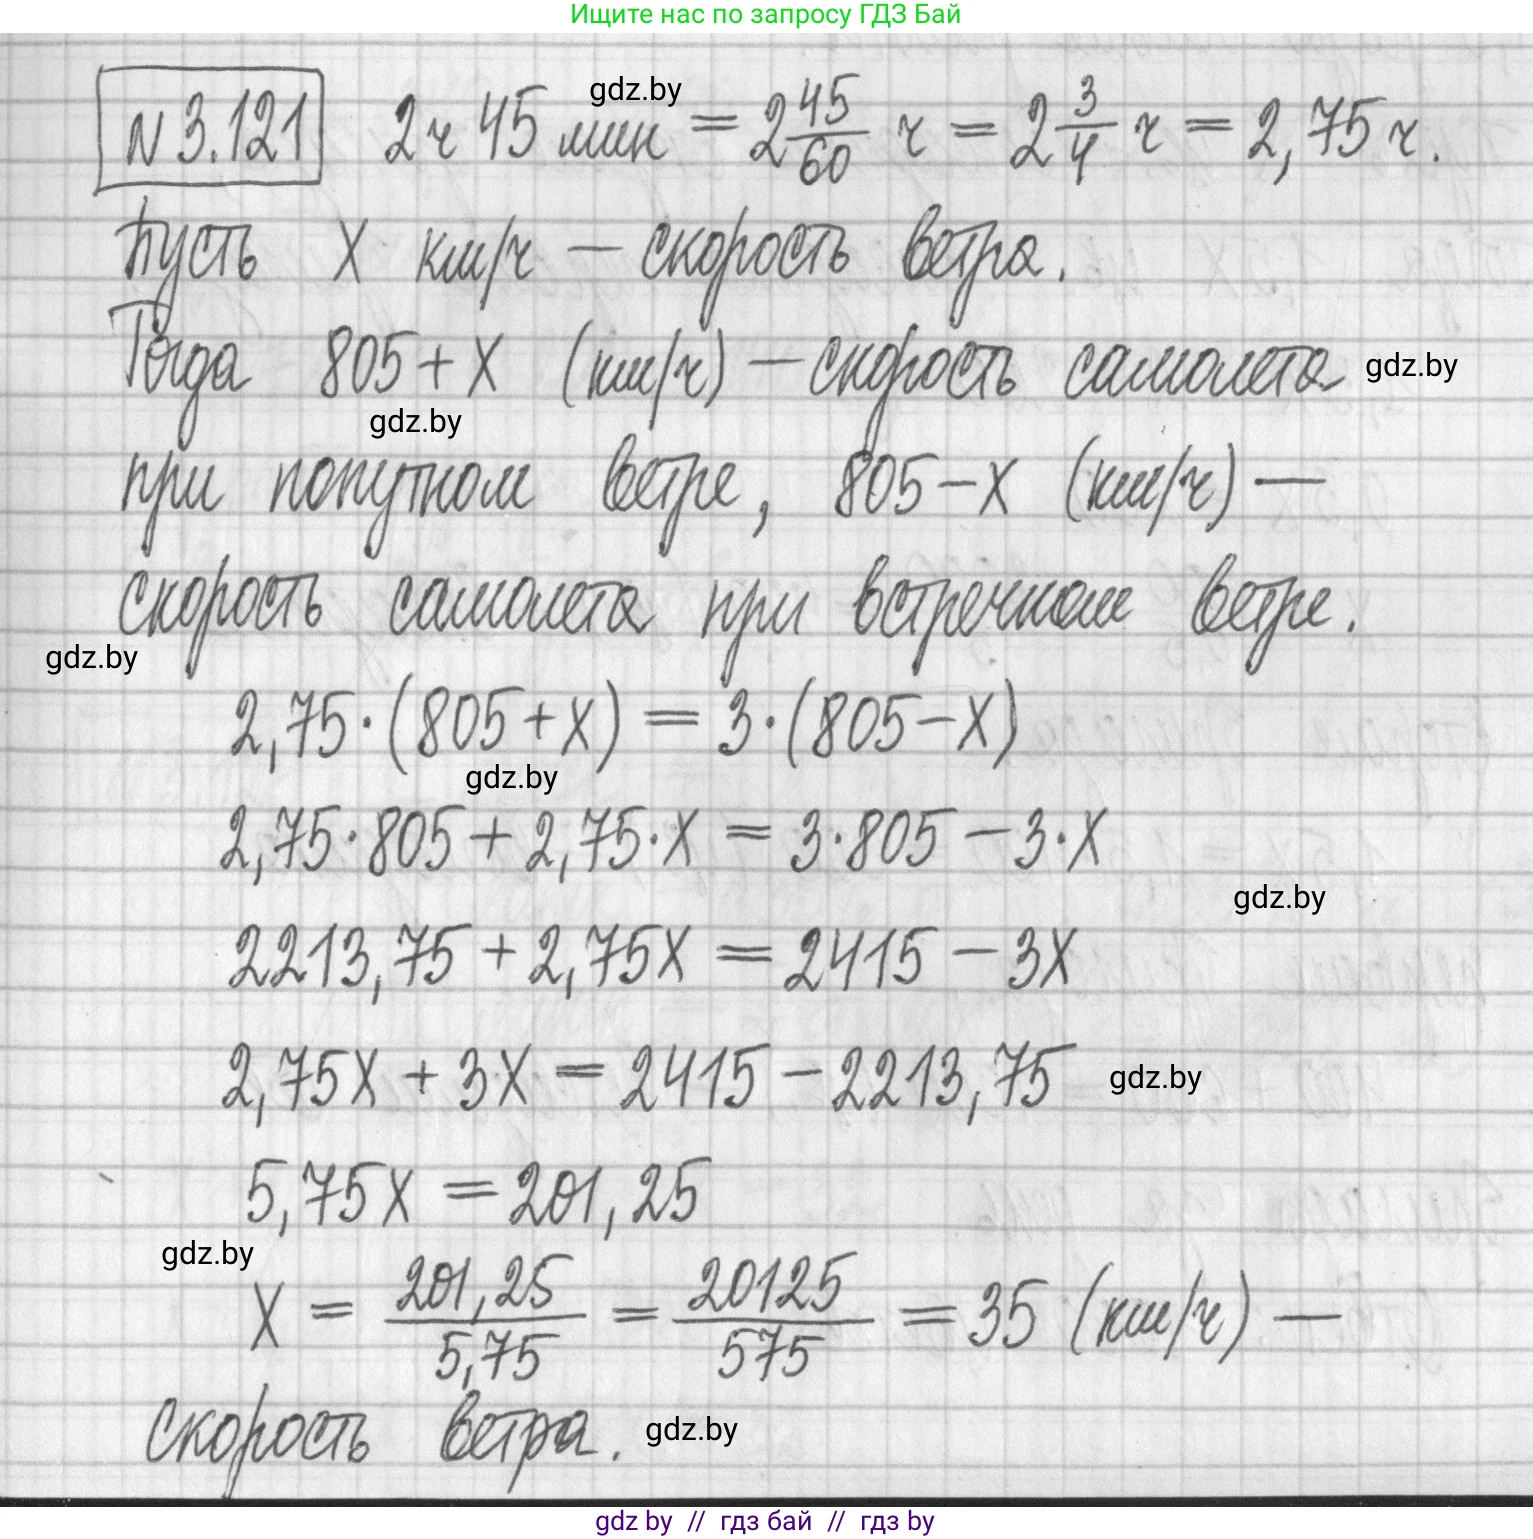 Ищите нас по запросу ГДЗ Бай
N 3.121 2 ч 45 мин = 2 45/60 ч = 2 3/4 ч = 2,75 ч.
gdz.by
Пусть X км/ч – скорость ветра.
Тогда 805 + X (км/ч) – скорость самолета
gdz.by
gdz.by
при попутном ветре, 805 – X (км/ч) –
скорость самолета при встречном ветре.
gdz.by
2,75 · (805 + X) = 3 · (805 – X)
gdz.by
2,75 · 805 + 2,75 · X = 3 · 805 – 3 · X
gdz.by
2213,75 + 2,75X = 2415 – 3X
2,75X + 3X = 2415 – 2213,75
gdz.by
5,75X = 201,25
gdz.by
X = 201,25/5,75 = 20125/575 = 35 (км/ч) –
скорость ветра.
gdz.by
gdz by // гдз бай // гдз by